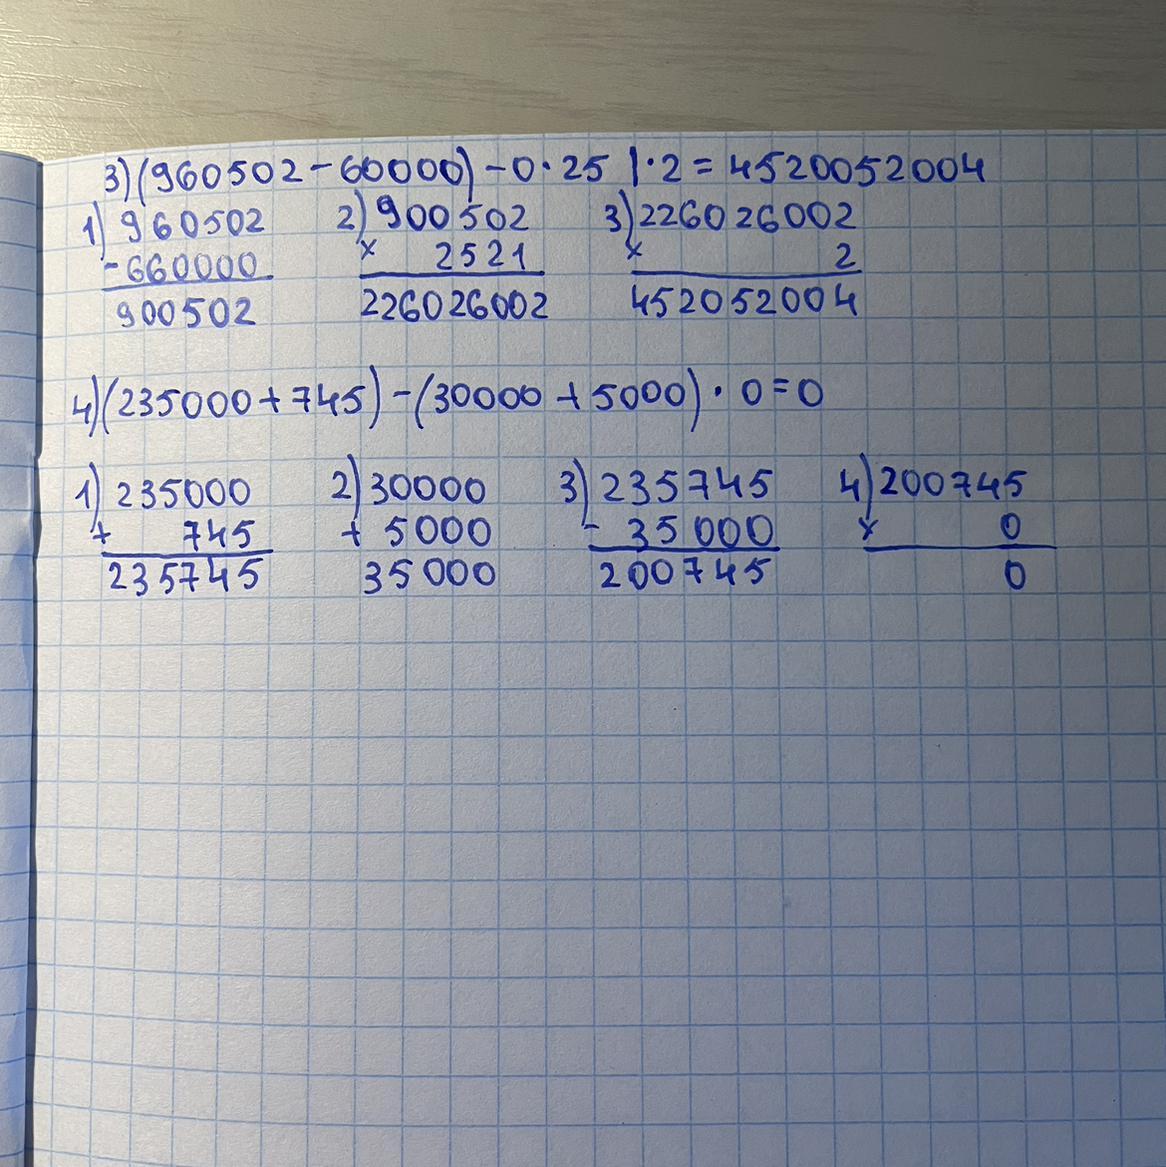 3)(960502-60000)-0·25 |·2=4520052004
1) 960502 2) 900502 3) 226026002
- 660000 × 2521 × 2
900502 226026002 452052004
4)(235000+745)-(30000+5000)·0=0
1) 235000 2) 30000 3) 235745 4) 200745
+ 745 + 5000 - 35000 × 0
235745 35000 200745 0